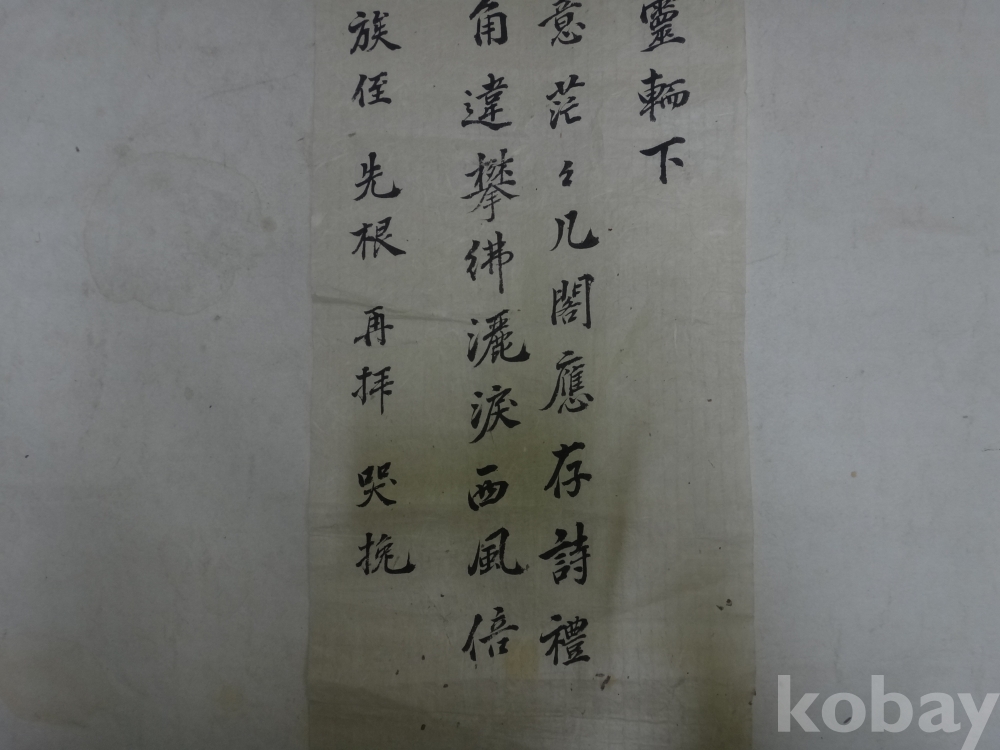 靈輀下
意茫々几閣應存詩禮
角違攀彿灑淚西風倍
族侄 先根 再拜 哭挽
kobay